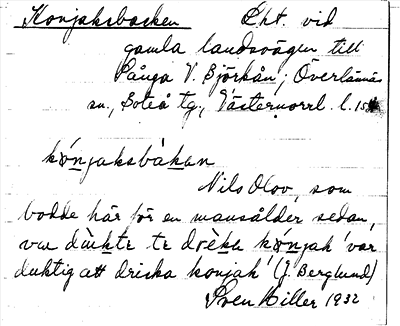 Konjaksbacken Eht. vid
gamla landsvägen till
Pånga V. Björkån; Överlännäs
sn., Boteå tg., Västernorrl. l.
kɔ́njaksbàkan
Nils Olov, som
bodde här för en mansålder sedan,
va dùkte te drèka kɔ́njak 'var
duktig att dricka konjak' (J. Berglund)
Sven Hiller 1932